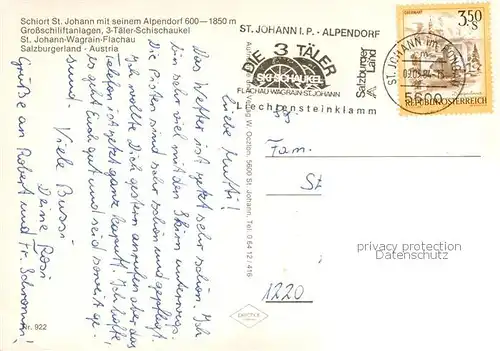 Schiort St. Johann mit seinem Alpendorf 600—1850 m
Großschiliftanlagen, 3-Täler-Schischaukel
St. Johann-Wagrain-Flachau
Salzburgerland - Austria
Liebe Mutti!
Das Wetter ist jetzt sehr schön. Ich
bin sehr viel mit den Skiern unterwegs.
Die Pisten sind sehr schön und gepflegt.
Ich wollte Dich gestern anrufen aber das
Telefon ist jetzt ganz kaputt. Ich hoffe,
es geht Euch gut und seid soweit ge-
sund.
Viele Bussi
Deine Rosi
Grüße an Robert und Fr. Schramm!
Nr. 922
ST. JOHANN I. P. - ALPENDORF
DIE 3 TÄLER
SKI-SCHAUKEL
FLACHAU-WAGRAIN-ST.JOHANN
Liechtensteinklamm
Salzburger
Land
ST. JOHANN IM PONGAU
5600
3,50
S
REPUBLIK ÖSTERREICH
Fam.
St
1220
privacy protection
AnsichtskartenVersand.com